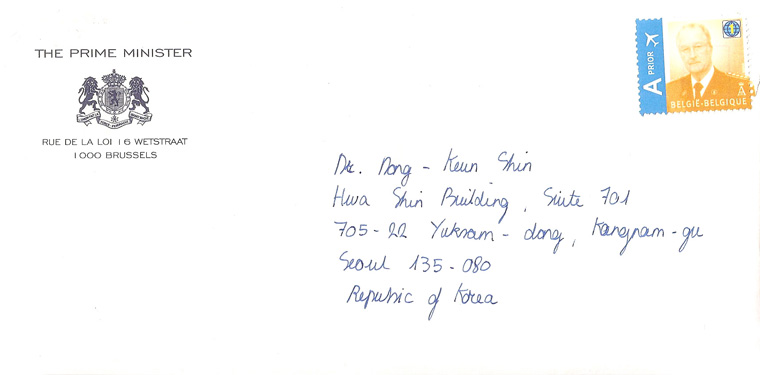 THE PRIME MINISTER
RUE DE LA LOI 16 WETSTRAAT
1000 BRUSSELS
A PRIOR
BELGIË-BELGIQUE
Dr. Dong - Keun Shin
Hwa Shin Building, Suite 701
705-22 Yuksam - dong, Kangnam - gu
Seoul 135-080
Republic of Korea